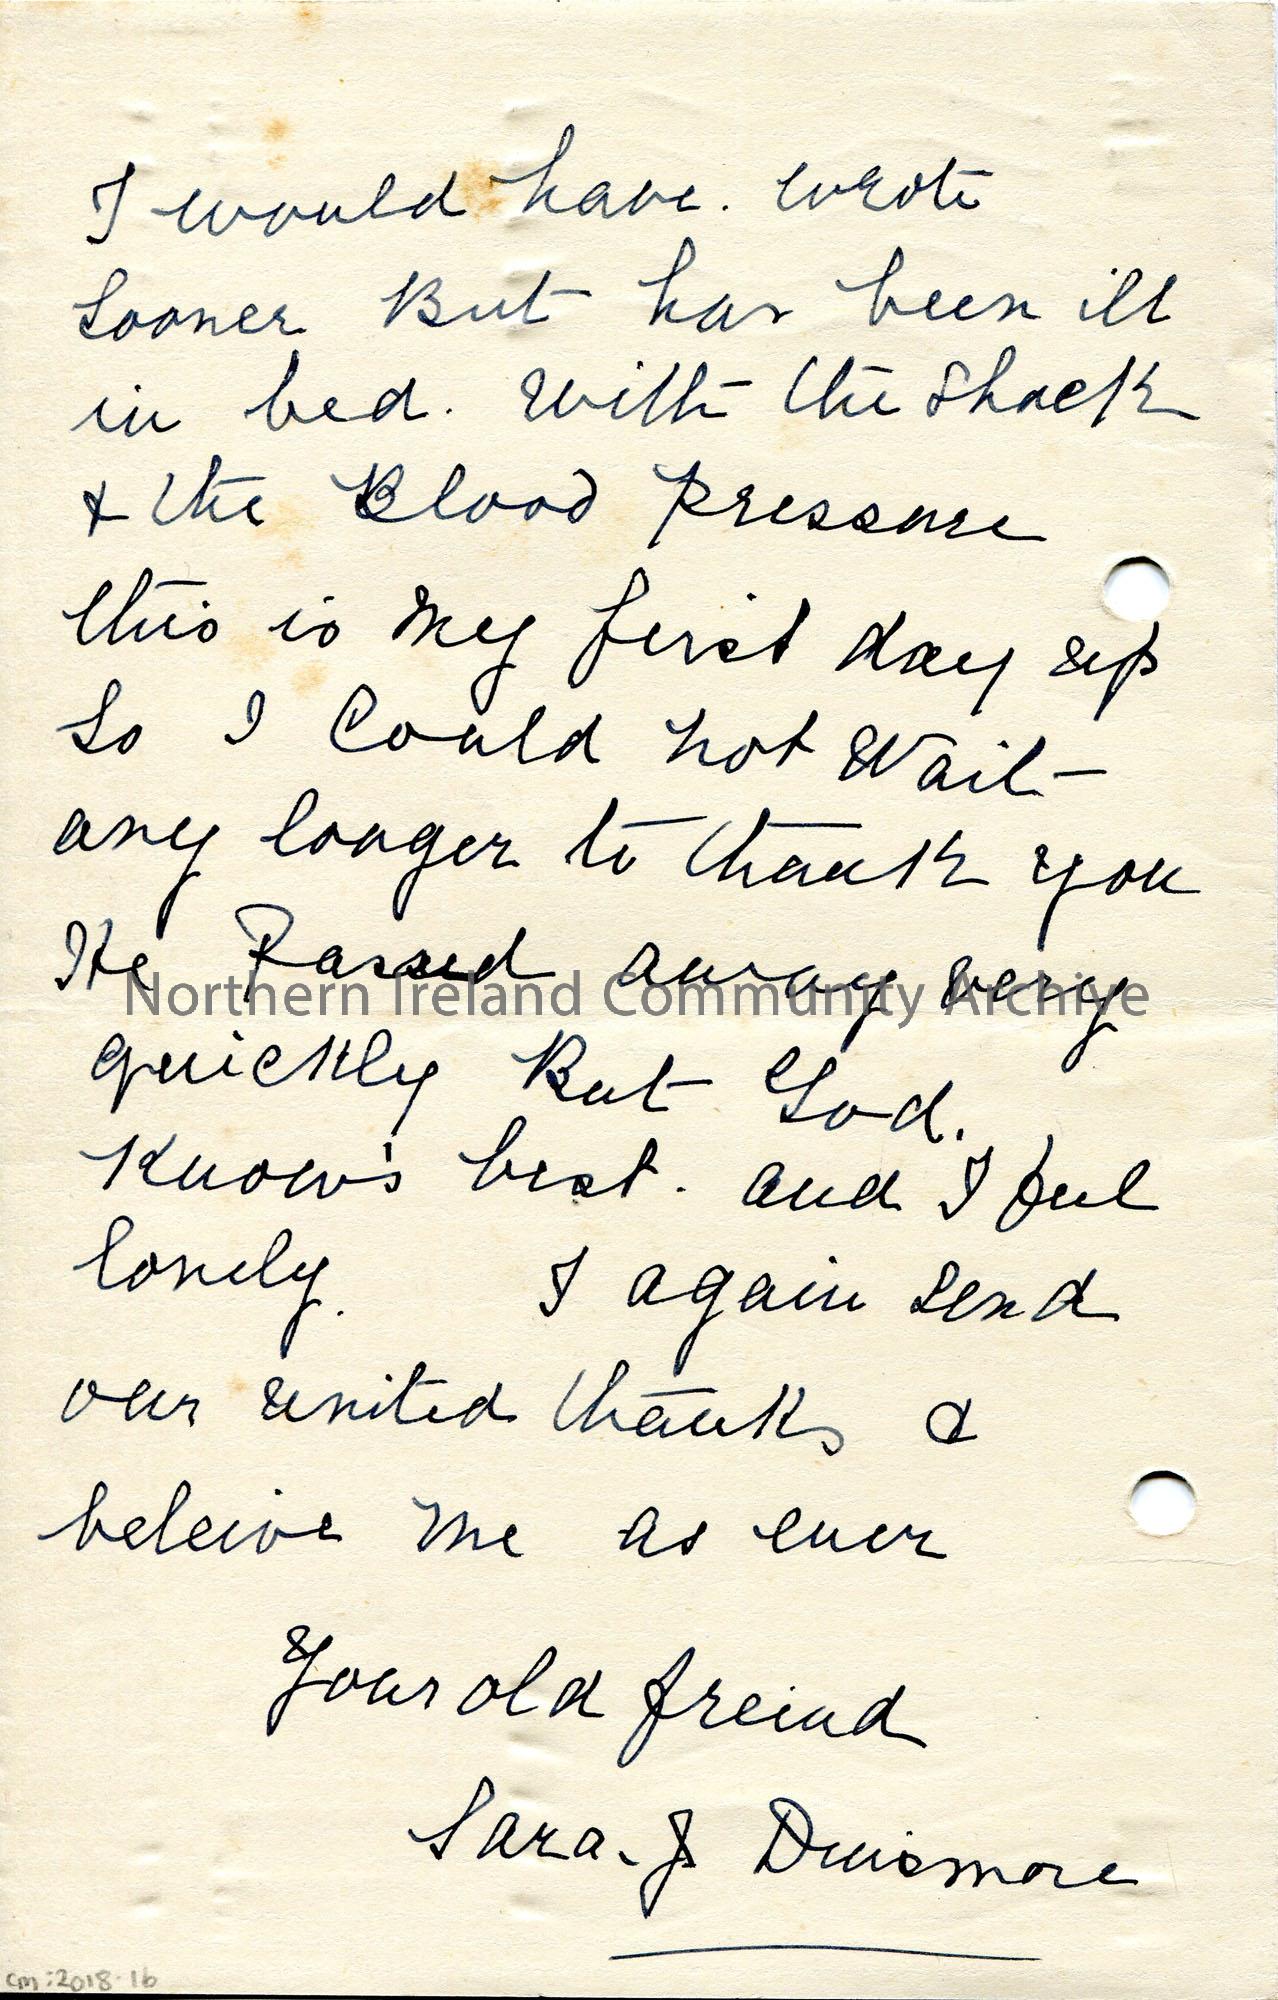 I would have. wrote
Sooner But has been ill
in bed. With the Shock
& the Blood Pressure
this is My first day up
So I Could not Wait
any longer to thank you
He Passed away very
Northern Ireland Community Archive
quickly But God.
Know's best. and I feel
lonely. I again send
our united thanks &
beleive Me as ever
Your old freind
Sara. J Dinsmore
cm:2018-16